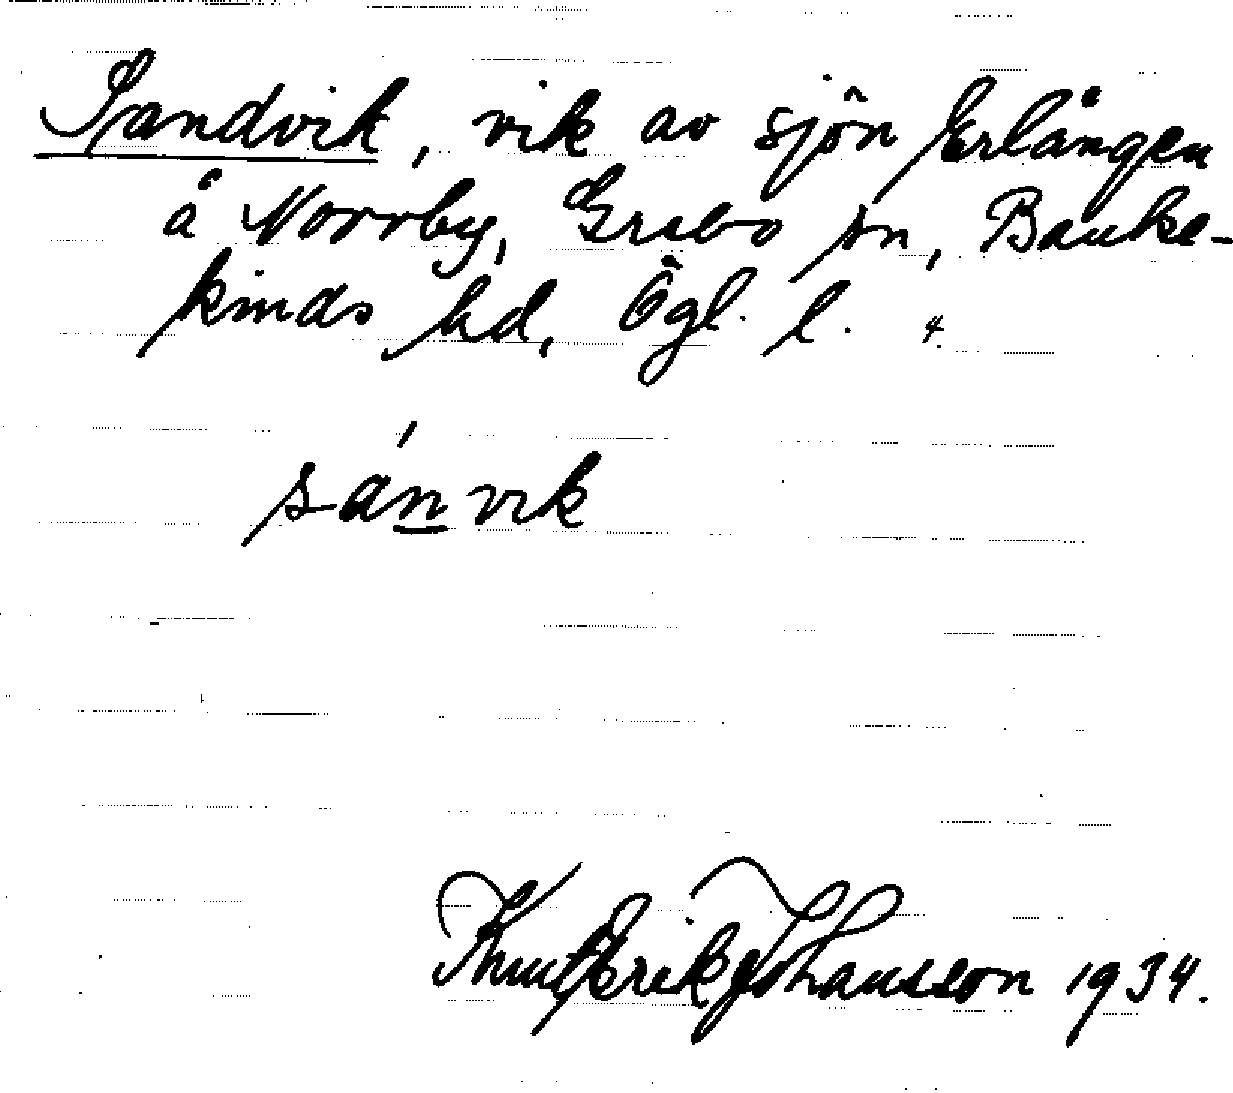 Sandvik, vik av sjön Erlången
å Norrby, Grebo sn, Banke-
kinds hd, Ögl. l. 4.
sánvik
Knut Erik Johansson 1934.